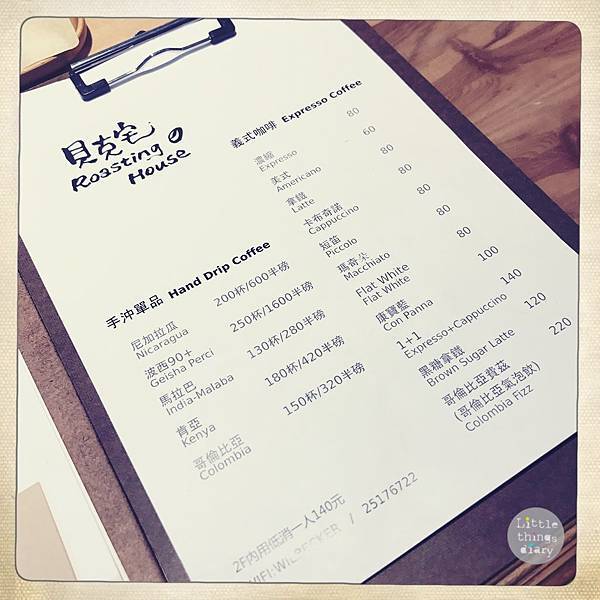 貝克宅
Roasting
House
義式咖啡 Expresso Coffee
濃縮 80
Expresso
美式 60
Americano
拿鐵 80
Latte
卡布奇諾 80
Cappuccino
短笛 80
Piccolo
瑪奇朵 80
Macchiato
Flat White 80
Flat White
康寶藍 100
Con Panna
1+1 140
Expresso+Cappuccino
黑糖拿鐵 120
Brown Sugar Latte
哥倫比亞費茲 220
(哥倫比亞氣泡飲)
Colombia Fizz
手沖單品 Hand Drip Coffee
尼加拉瓜 200杯/600半磅
Nicaragua
波西90+ 250杯/1600半磅
Geisha Perci
馬拉巴 130杯/280半磅
India-Malaba
肯亞 180杯/420半磅
Kenya
哥倫比亞 150杯/320半磅
Colombia
2F內用低消一人140元
WIFI:WILBECKER / 25176722
Little
things
diary